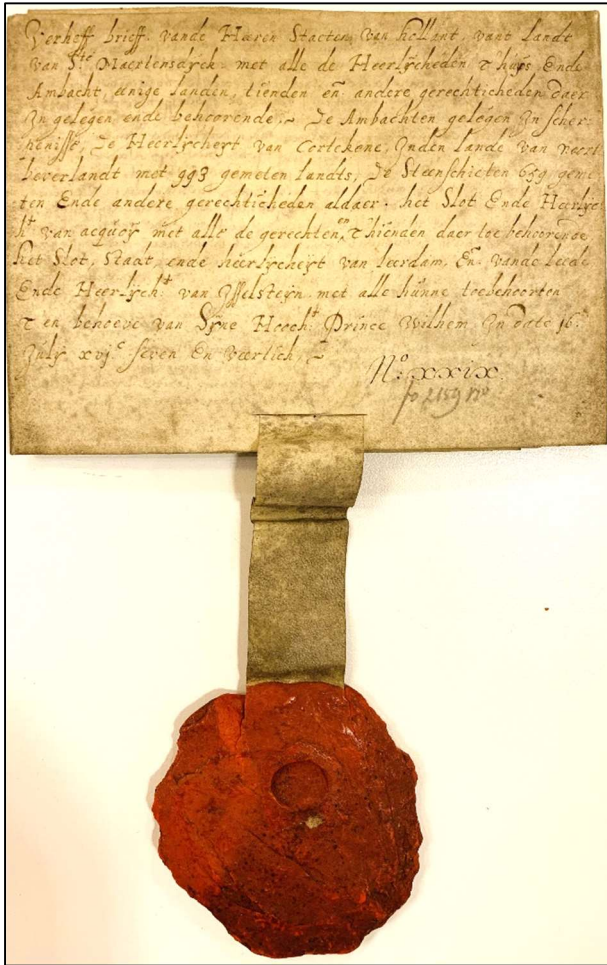 Verheff brieff vande Heeren Staeten van hollant, vant landt
van Ste Maertensdyck met alle de Heerlycheden t huys Ende
Ambacht, eenige landen, tienden en andere gerechticheden daer
in gelegen ende behoorende, De Ambachten gelegen in scher-
nenisse, De Heerlycheyt van Cortekene, inden lande van noort
beverlandt met 993 gemeten landts, De Steenschieten 659 geme
ten Ende andere gerechticheden aldaer. het Slot Ende Heerlyc
ht van acquoy met alle de gerechten, thienden daer toe behoorende
het Slot, Staat, ende heerlycheyt van leerdam, En vande leede
Ende Heerlycht van Ysselsteyn met alle hunne toebehoorten
ten behoeve van Syne Hooht Prince Wilhem in date 16
July xvjc seven En veertich,
No xxix.
fo 2159 vo